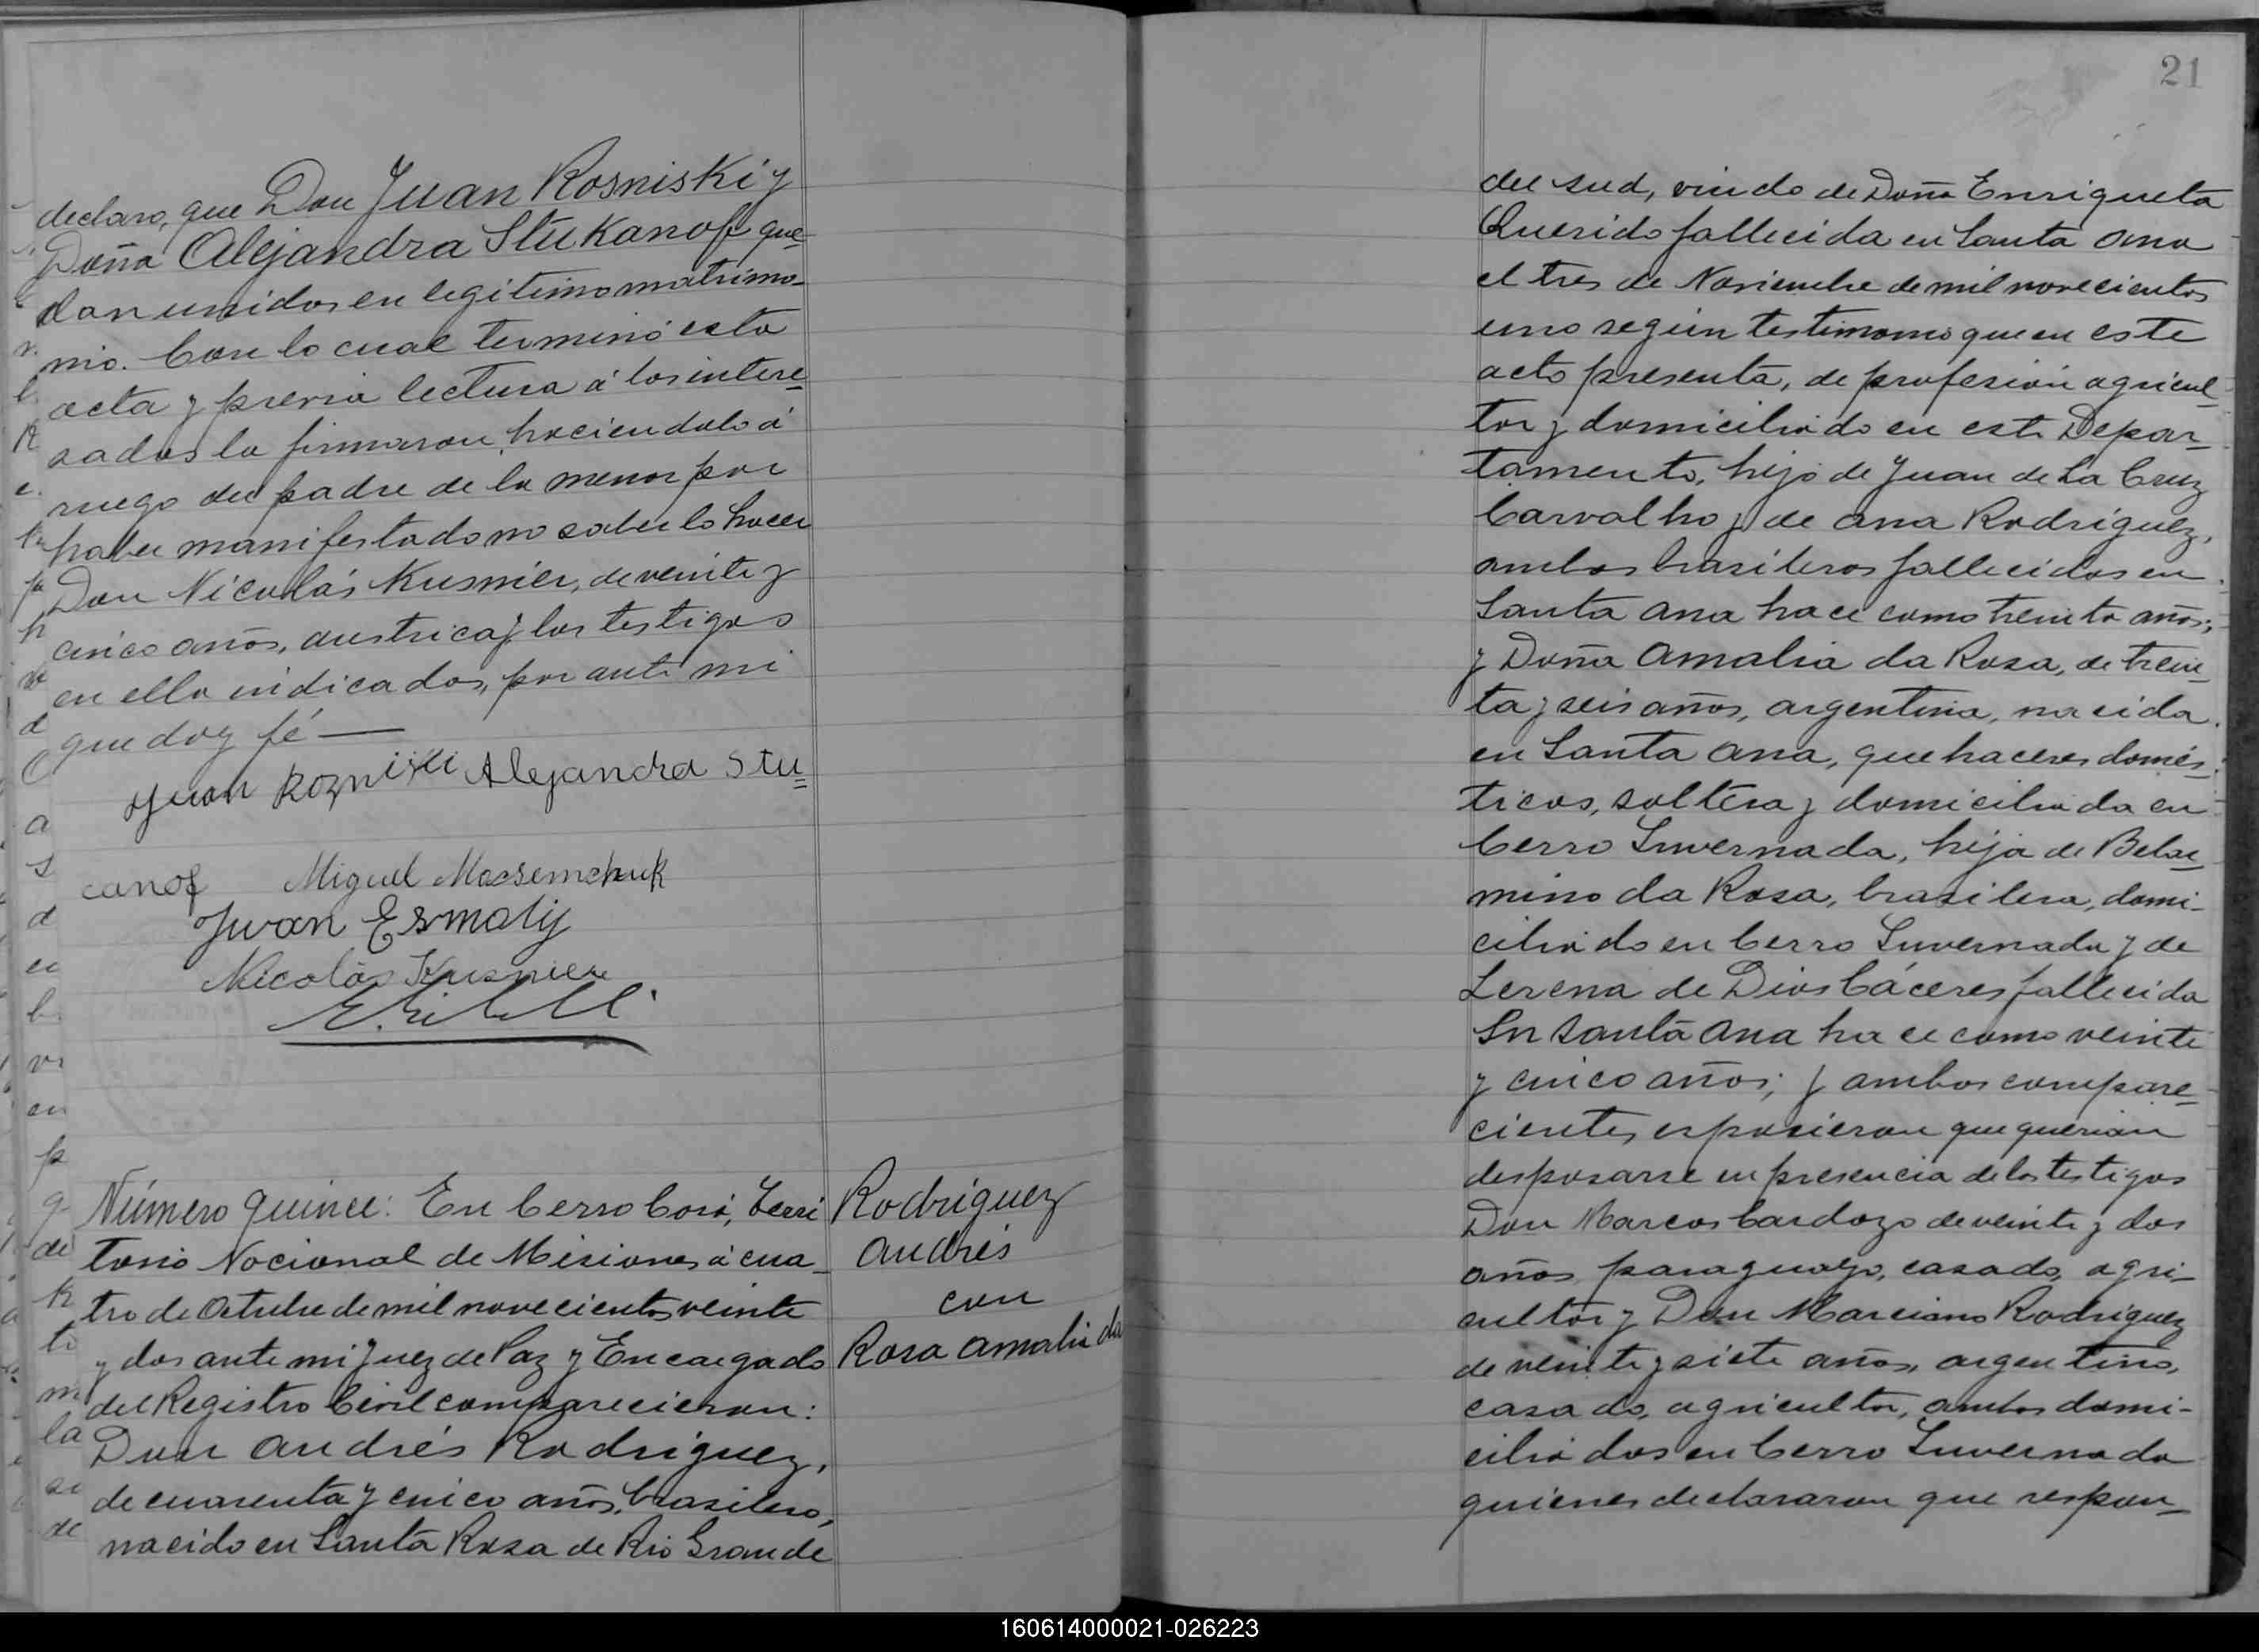 declaro, que Don Juan Rosniski y
Doña Alejandra Stukanof que-
dan unidos en legítimo matrimo-
nio. Con lo cual terminó esta
acta y previa lectura á los intere-
sados la firmaron, haciendolo á
ruego del padre de la menor por
haber manifestado no saberlo hacer
Don Nicolás Kusnier, de veinte y
cinco años, austrica y los testigos
en ella indicados, por ante mi
que doy fé —
Juan Rozniski Alejandra Stu=
canof Miguel
Juan Esmaly
Nicolás Kusnier
Número quince: En Cerro Corá, Terri
torio Nacional de Misiones á cua-
tro de Octubre de mil novecientos veinte
y dos ante mi Juez de Paz y Encargado
del Registro Civil comparecieron:
Don Andrés Rodriguez,
de cuarenta y cinco años, brasilero,
nacido en Santa Rosa de Rio Grande
Rodriguez
Andrés
con
Rosa Amalia da
21
del sud, viudo de Doña Enriqueta
Querido fallecida en Santa Ana
el tres de Noviembre de mil novecientos
uno según testimonio que en este
acto presenta, de profesión agricul-
tor y domiciliado en este Depar-
tamento, hijo de Juan de La Cruz
Carvalho y de Ana Rodriguez,
ambos brasileros fallecidos en
Santa Ana hace como treinta años;
y Doña Amalia da Rosa, de trein-
ta y seis años, argentina, nacida
en Santa Ana, quehaceres domés-
ticos, soltera y domiciliada en
Cerro Invernada, hija de Belar-
mino da Rosa, brasilera, domi-
ciliado en Cerro Invernada y de
Lerena de Dios Cáceres fallecida
En Santa Ana hace como veinte
y cinco años; y ambos compare-
cientes expusieron que querian
desposarse en presencia de los testigos
Don Marcos Cardozo de veinte y dos
años paraguayo, casado, agri-
cultor y Don Marciano Rodriguez
de veinte y siete años, argentino,
casado, agricultor, ambos domi-
ciliados en Cerro Invernada
quienes declararon que respon-
160614000021-026223